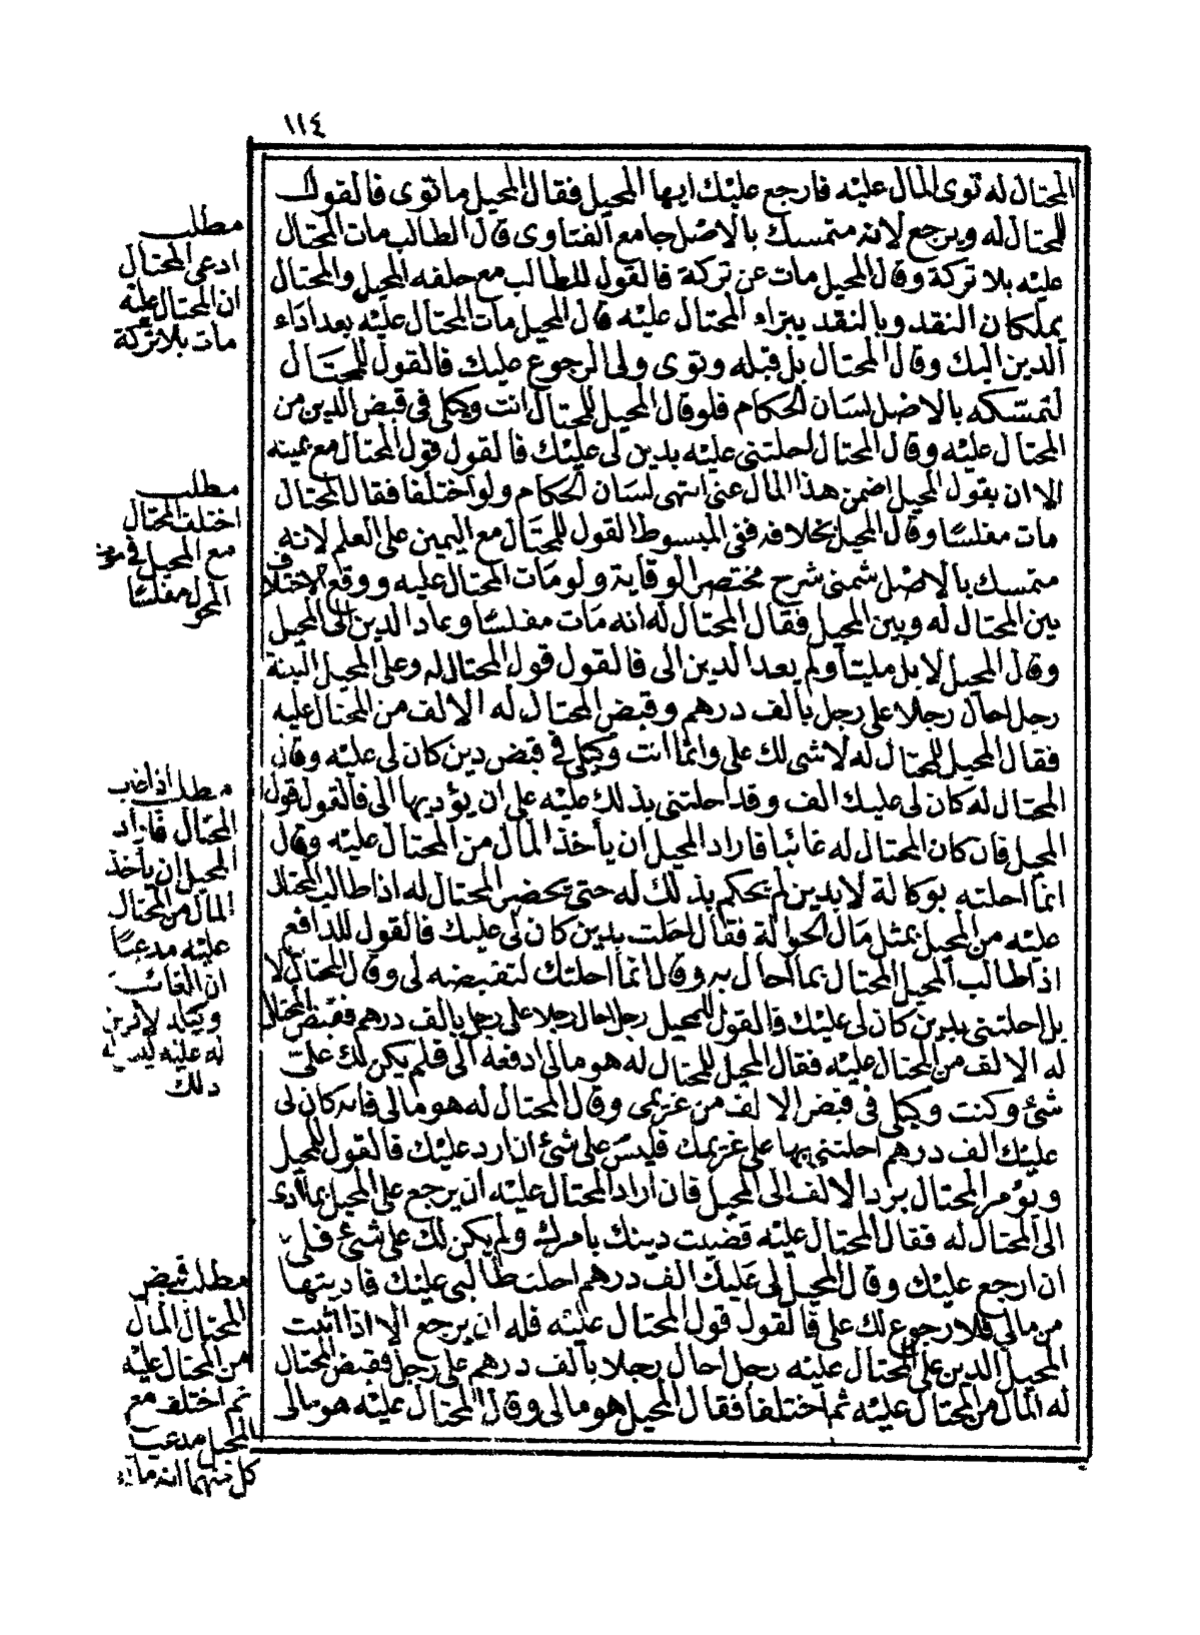 ١١٤
المحتال له توى المال عليه فارجع عليك ايها المحيل فقال المحيل ما توى فالقول
للمحتال له ويرجع لانه متمسك بالاصل جامع الفتاوى قال الطالب مات المحتال
عليه بلا تركة وقال المحيل مات عن تركة فالقول للطالب مع حلفه المحيل والمحتال
يملكان النقد وبالنقد يبراء المحتال عليه قال المحيل مات المحتال عليه بعد اداء
الدين اليك وقال المحتال بل قبله وتوى ولى الرجوع عليك فالقول للمحتال
لتمسكه بالاصل لسان الحكام فلو قال المحيل للمحتال انت وكيلى فى قبض الدين من
المحتال عليه وقال المحتال احلتنى عليه بدين لى عليك فالقول قول المحتال مع يمينه
الا ان يقول المحيل اضمن هذا المال عنى انتهى لسان الحكام ولو اختلفا فقال المحتال
مات مفلسا وقال المحيل بخلافه ففى المبسوط القول للمحتال مع اليمين على العلم لانه
متمسك بالاصل شمنى شرح مختصر الوقاية ولو مات المحتال عليه ووقع الاختلاف
بين المحتال له وبين المحيل فقال المحتال له انه مات مفلسا وعاد الدين الى المحيل
وقال المحيل لا بل مليئا ولم يعد الدين الى فالقول قول المحتال له وعلى المحيل البينة
رجل احال رجلا على رجل بالف درهم وقبض المحتال له الالف من المحتال عليه
فقال المحيل للمحتال له لا شى لك على وانما انت وكيلى فى قبض دين كان لى عليه وقال
المحتال له كان لى عليك الف وقد احلتنى بذلك عليه على ان يؤديها الى فالقول قول
المحيل فان كان المحتال له غائبا فاراد المحيل ان يأخذ المال من المحتال عليه وقال
انما احلته بوكالة لا بدين لم يحكم بذلك له حتى يحضر المحتال له اذا طالب المحتال
عليه من المحيل بمثل مال الحوالة فقال احلت بدين كان لى عليك فالقول للدافع
اذا طالب المحيل المحتال بما احال به وقال انما احلتك لتقبضه لى وقال المحتال لا
بل احلتنى بدين كان لى عليك فالقول للمحيل رجل احال رجلا على رجل بالف درهم فقبض المحتال
له الالف من المحتال عليه فقال المحيل للمحتال له هو مالى ادفعه الى فلم يكن لك على
شئ وكنت وكيلى فى قبض الالف من غريمى وقال المحتال له هو مالى فانه كان لى
عليك الف درهم احلتنى بها على غريمك فليس على شئ ان ارد عليك فالقول للمحيل
ويؤمر المحتال برد الالف الى المحيل فان اراد المحتال عليه ان يرجع على المحيل بما ادى
الى المحتال له فقال المحتال عليه قضيت دينك بامرك ولم يكن لك على شئ فلى
ان ارجع عليك وقال المحيل لى عليك الف درهم احلت طالبى عليك فاديتها
من مالى فلا رجوع لك على فالقول قول المحتال عليه فله ان يرجع الا اذا اثبت
المحيل الدين على المحتال عليه رجل احال رجلا بالف درهم على رجل فقبض المحتال
له المال من المحتال عليه ثم اختلفا فقال المحيل هو مالى وقال المحتال عليه هو مالى
مطلب
ادعى المحتال
ان المحتال عليه
مات بلا تركة
مطلب
اختلف المحتال
مع المحيل فى موت
المحول مفلسا
مطلب اذا غاب
المحتال فاراد
المحيل ان يأخذ
المال من المحتال
عليه مدعيا
ان الغائب
وكيله لا دين
له عليه ليس له
ذلك
مطلب قبض
المحتال المال
من المحتال عليه
ثم اختلف مع
المحيل مدعيا
كل منهما انه ماله